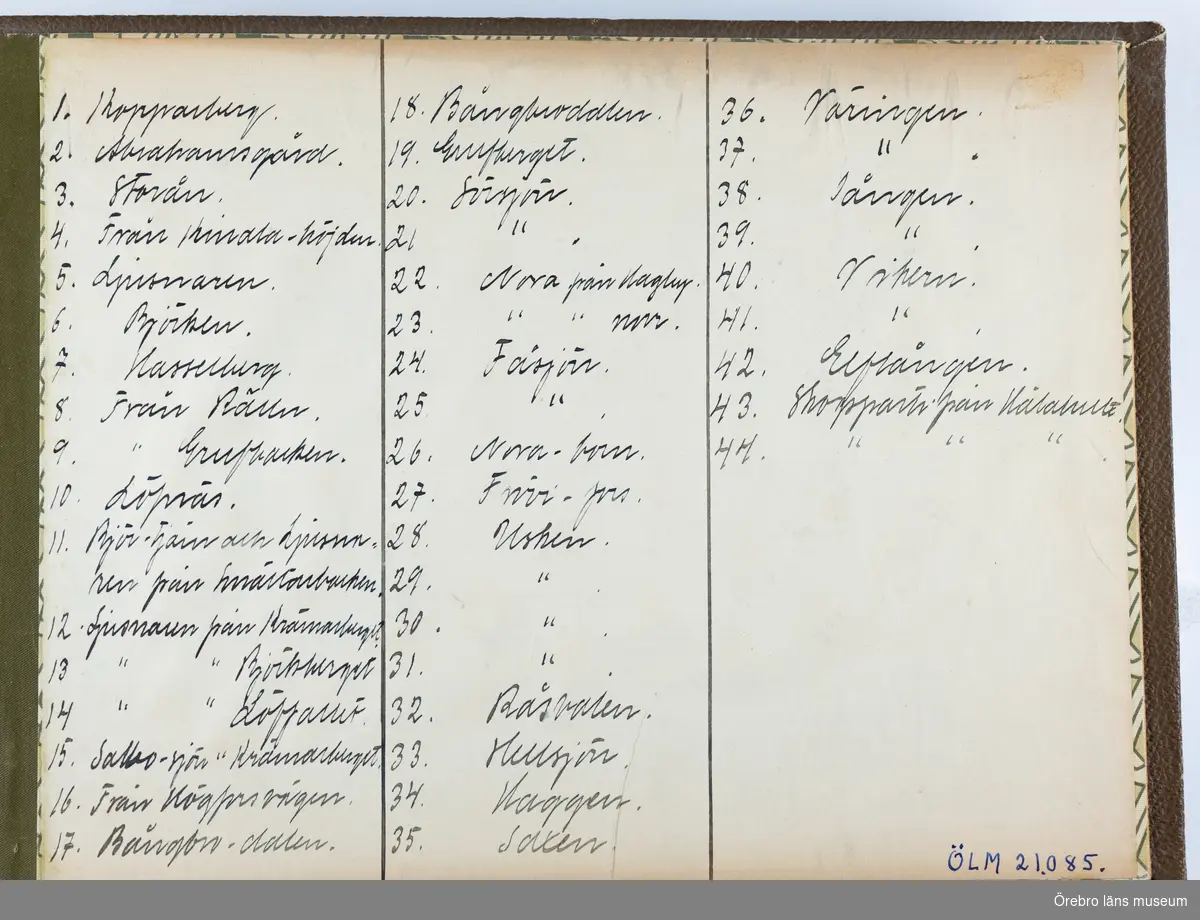 1. Kopparberg.
2. Abrahamsgård.
3. Storån.
4. Från Kindla-höjden.
5. Ljusnaren.
6. Björken.
7. Hasselberg.
8. Från Rällen.
9. " Grufbacken.
10. Löpnäs.
11. Björ-tjärn och Ljusna-
ren från Smältarbacken.
12. Ljusnaren från Krämarberget.
13 " " Björksberget
14 " " Löffallet.
15. Salbo-sjön " Krämarberget.
16. Från Högforsvägen.
17. Bångbro-dalen.
18. Bångbrodalen.
19. Grufberget.
20. Sörsjön.
21 " .
22. Nora från Hagby.
23. " " norr.
24. Fåsjön.
25 " .
26. Nora-torn.
27. Frövi-fors.
28. Usken.
29. " .
30. " .
31. "
32. Råsvalen.
33. Hellsjön.
34. Haggen.
35. Saxen.
36. Väringen.
37. " .
38. Iången.
39. " .
40. Vikern.
41. " .
42. Elftången.
43. Skogsparti från Hålahult.
44. " " " .
ÖLM 21.085.
Örebro läns museum